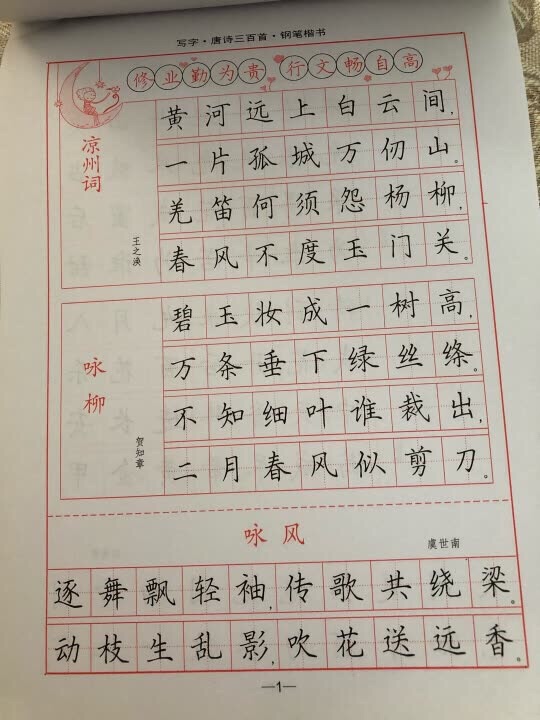 写字·唐诗三百首·钢笔楷书
修业勤为贵 行文畅自高
凉州词
王之涣
黄河远上白云间，
一片孤城万仞山。
羌笛何须怨杨柳，
春风不度玉门关。
咏柳
贺知章
碧玉妆成一树高，
万条垂下绿丝绦。
不知细叶谁裁出，
二月春风似剪刀。
咏风
虞世南
逐舞飘轻袖，传歌共绕梁。
动枝生乱影，吹花送远香。
—1—